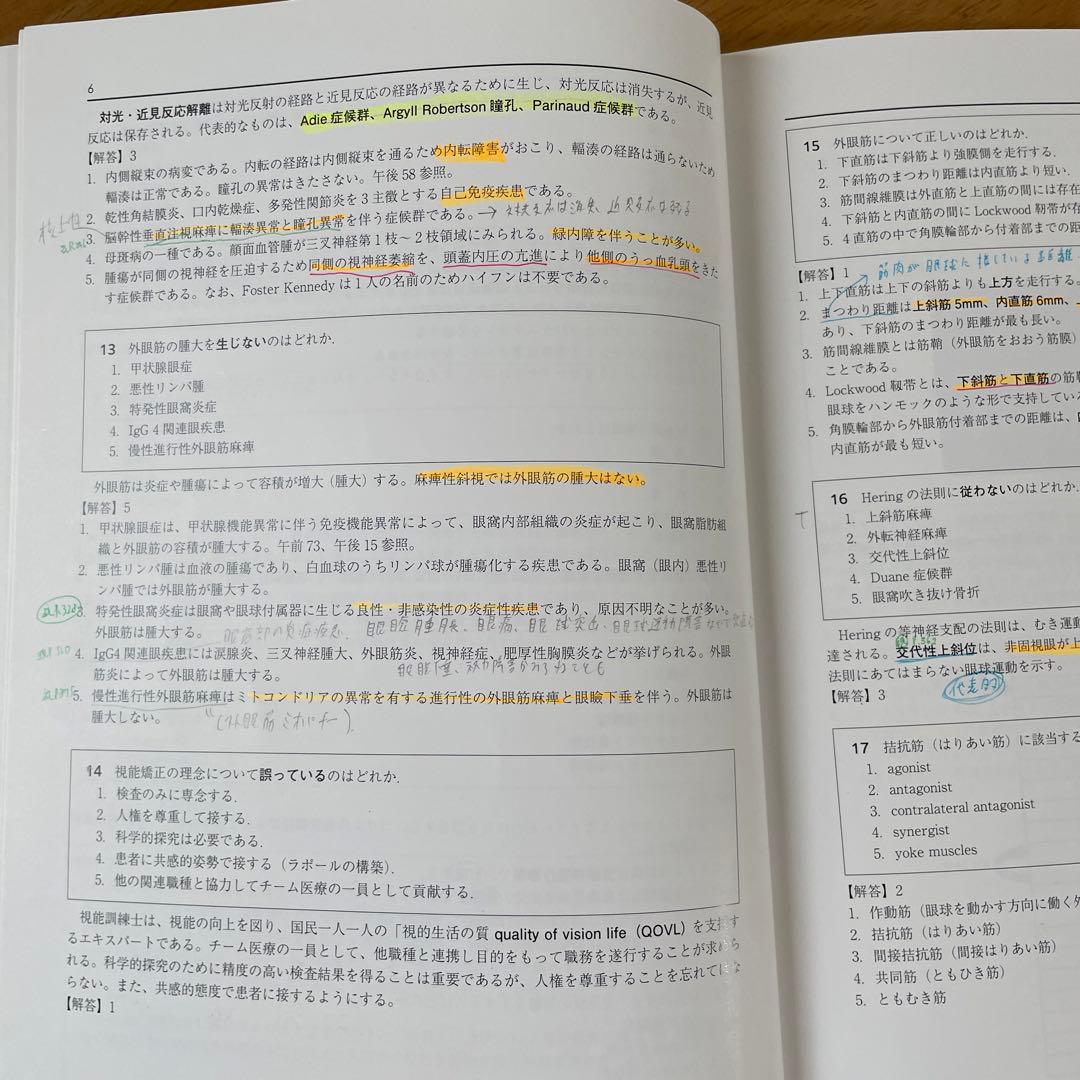 6
対光・近見反応解離は対光反射の経路と近見反応の経路が異なるために生じ、対光反応は消失するが、近見
反応は保存される。代表的なものは、Adie 症候群、Argyll Robertson 瞳孔、Parinaud 症候群である。
【解答】3
1. 内側縦束の病変である。内転の経路は内側縦束を通るため内転障害がおこり、輻湊の経路は通らないため
輻湊は正常である。瞳孔の異常はきたさない。午後 58 参照。
2. 乾性角結膜炎、口内乾燥症、多発性関節炎を 3 主徴とする自己免疫疾患である。
核上性
3. 脳幹性垂直注視麻痺に輻湊異常と瞳孔異常を伴う症候群である。→ 対光反応は消失 近見反応は
4. 母斑病の一種である。顔面血管腫が三叉神経第 1 枝～ 2 枝領域にみられる。緑内障を伴うことが多い。
5. 腫瘍が同側の視神経を圧迫するため同側の視神経萎縮を、頭蓋内圧の亢進により他側のうっ血乳頭をきた
す症候群である。なお、Foster Kennedy は 1 人の名前のためハイフンは不要である。
13 外眼筋の腫大を生じないのはどれか.
1. 甲状腺眼症
2. 悪性リンパ腫
3. 特発性眼窩炎症
4. IgG 4 関連眼疾患
5. 慢性進行性外眼筋麻痺
外眼筋は炎症や腫瘍によって容積が増大（腫大）する。麻痺性斜視では外眼筋の腫大はない。
【解答】5
1. 甲状腺眼症は、甲状腺機能異常に伴う免疫機能異常によって、眼窩内部組織の炎症が起こり、眼窩脂肪組
織と外眼筋の容積が腫大する。午前 73、午後 15 参照。
2. 悪性リンパ腫は血液の腫瘍であり、白血球のうちリンパ球が腫瘍化する疾患である。眼窩（眼内）悪性リ
ンパ腫では外眼筋が腫大する。
3. 特発性眼窩炎症は眼窩や眼球付属器に生じる良性・非感染性の炎症性疾患であり、原因不明なことが多い。
外眼筋は腫大する。 眼瞼腫脹、眼痛、眼球突出、眼球運動障害など
4. IgG4 関連眼疾患には涙腺炎、三叉神経腫大、外眼筋炎、視神経症、肥厚性胸膜炎などが挙げられる。外眼
筋炎によって外眼筋は腫大する。
5. 慢性進行性外眼筋麻痺はミトコンドリアの異常を有する進行性の外眼筋麻痺と眼瞼下垂を伴う。外眼筋は
腫大しない。 （外眼筋ミオパチー）
14 視能矯正の理念について誤っているのはどれか.
1. 検査のみに専念する.
2. 人権を尊重して接する.
3. 科学的探究は必要である.
4. 患者に共感的姿勢で接する（ラポールの構築）.
5. 他の関連職種と協力してチーム医療の一員として貢献する.
視能訓練士は、視能の向上を図り、国民一人一人の「視的生活の質 quality of vision life（QOVL）を支援す
るエキスパートである。チーム医療の一員として、他職種と連携し目的をもって職務を遂行することが求めら
れる。科学的探究のために精度の高い検査結果を得ることは重要であるが、人権を尊重することを忘れてはな
らない。また、共感的態度で患者に接するようにする。
【解答】1
15 外眼筋について正しいのはどれか.
1. 下直筋は下斜筋より強膜側を走行する.
2. 下斜筋のまつわり距離は内直筋より短い.
3. 筋間線維膜は外直筋と上直筋の間には存在
4. 下斜筋と内直筋の間に Lockwood 靱帯が存
5. 4 直筋の中で角膜輪部から付着部までの距
【解答】1 筋肉が眼球に接している距離
1. 上下直筋は上下の斜筋よりも上方を走行する。
2. まつわり距離は上斜筋 5mm、内直筋 6mm、
あり、下斜筋のまつわり距離が最も長い。
3. 筋間線維膜とは筋鞘（外眼筋をおおう筋膜）
ことである。
4. Lockwood 靱帯とは、下斜筋と下直筋の筋鞘
眼球をハンモックのような形で支持している
5. 角膜輪部から外眼筋付着部までの距離は、内
内直筋が最も短い。
16 Hering の法則に従わないのはどれか.
1. 上斜筋麻痺
2. 外転神経麻痺
3. 交代性上斜位
4. Duane 症候群
5. 眼窩吹き抜け骨折
Hering の等神経支配の法則は、むき運動
達される。交代性上斜位は、非固視眼が上
法則にあてはまらない眼球運動を示す。
【解答】3 代表的
17 拮抗筋（はりあい筋）に該当する
1. agonist
2. antagonist
3. contralateral antagonist
4. synergist
5. yoke muscles
【解答】2
1. 作動筋（眼球を動かす方向に働く外
2. 拮抗筋（はりあい筋）
3. 間接拮抗筋（間接はりあい筋）
4. 共同筋（ともひき筋）
5. ともむき筋